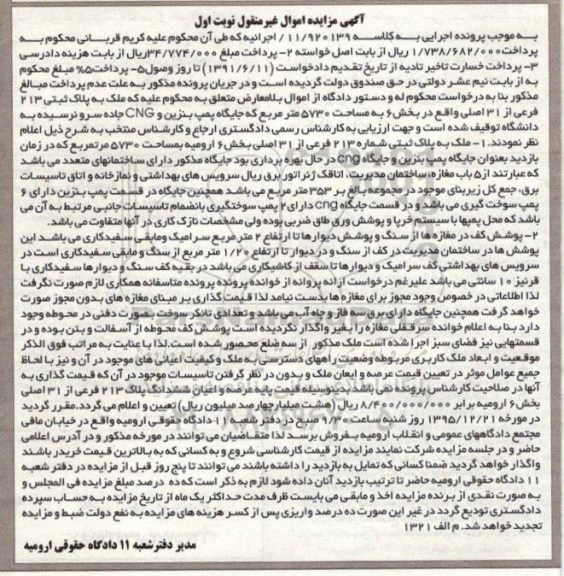 آگهی مزایده اموال غیرمنقول نوبت اول
به موجب پرونده اجرایی به کلاسه ۱۱/۹۲۰۱۳۹ اجرائیه که طی آن محکوم علیه کریم قربانی محکوم به
پرداخت ۱/۷۳۸/۶۸۲/۰۰۰ ریال از بابت اصل خواسته ۲- پرداخت مبلغ ۳۴/۷۷۴/۰۰۰ ریال از بابت هزینه دادرسی
۳- پرداخت خسارت تاخیر تادیه از تاریخ تقدیم دادخواست (۱۳۹۱/۶/۱۱) تا روز وصول ۵- پرداخت ۵% مبلغ محکوم
به از بابت نیم عشر دولتی در حق صندوق دولت گردیده است و در جریان پرونده مذکور به علت عدم پرداخت مبالغ
مذکور بنا به درخواست محکوم له و دستور دادگاه از اموال بلامعارض متعلق به محکوم علیه که ملک به پلاک ثبتی ۲۱۳
فرعی از ۳۱ اصلی واقع در بخش ۶ به مساحت ۵۷۳۰ متر مربع که جایگاه پمپ بنزین و CNG جاده سرو نرسیده به
دانشگاه توقیف شده است و جهت ارزیابی به کارشناس رسمی دادگستری ارجاع و کارشناس منتخب به شرح ذیل اعلام
نظر نمودند. ۱- ملک به پلاک ثبتی شماره ۲۱۳ فرعی از ۳۱ اصلی بخش ۶ ارومیه بمساحت ۵۷۳۰ مترمربع که در زمان
بازدید بعنوان جایگاه پمپ بنزین و جایگاه cng در حال بهره برداری بود جایگاه مذکور دارای ساختمانهای متعدد می باشد
که عبارتند از ۵ باب مغازه، ساختمان مدیریت، اتاقک ژنراتور برق ریال سرویس های بهداشتی و نمازخانه و اتاق تاسیسات
برق، جمع کل زیربنای موجود در مجموعه بالغ بر ۳۵۳ متر مربع می باشد همچنین جایگاه در قسمت پمپ بنزین دارای ۶
پمپ سوخت گیری می باشد و در قسمت جایگاه cng دارای ۲ پمپ سوختگیری بانضمام تاسیسات جانبی مرتبط به آن می
باشد که محل پمپها با سیستم خرپا و پوشش ورق طاق ضربی بوده ولی مشخصات نازک کاری در آنها متفاوت می باشد.
۲- پوشش کف در مغازه ها از سنگ و پوشش دیوارها تا ارتفاع ۲ متر مربع سرامیک ومابقی سفیدکاری می باشد این
پوشش ها در ساختمان مدیریت در کف از سنگ و در دیوار تا ارتفاع ۱/۲۰ متر مربع از سنگ و مابقی سفیدکاری است در
سرویس های بهداشتی کف سرامیک و دیوارها تا سقف از کاشیکاری می باشد در بقیه کف سنگ و دیوارها سفیدکاری با
قرنیز ۱۰ سانتی می باشد علیرغم درخواست ارائه پروانه از خوانده پرونده پرونده متاسفانه همکاری لازم صورت نگرفت
لذا اطلاعاتی در خصوص وجود مجوز برای مغازه ها بدست نیامد لذا قیمت گذاری بر مبنای مغازه های بدون مجوز صورت
خواهد گرفت همچنین جایگاه دارای برق سه فاز و چاه آب می باشد و تعدادی تانکر سوخت بصورت دفنی در محوطه وجود
دارد بنا به اعلام خوانده سرقفلی مغازه را بغیر واگذار نگردیده است پوشش کف محوطه از آسفالت و بتن بوده و در
قسمتهایی نیز فضای سبز اجرا شده است ملک مذکور از سه ضلع محصور شده است. لذا با عنایت به مراتب فوق الذکر
موقعیت و ابعاد ملک کاربری مربوطه وضعیت راههای دسترسی به ملک و کیفیت اعیانی های موجود در آن و نیز با لحاظ
جمیع عوامل موثر در تعیین قیمت عرصه و ایعان ملک و بدون در نظر گرفتن تاسیسات موجود در آن که قیمت گذاری به
آنها در صلاحیت کارشناس پرونده می باشد بدینوسیله قیمت پایه عرصه و اعیان ششدانگ پلاک ۲۱۳ فرعی از ۳۱ اصلی
بخش ۶ ارومیه برابر ۸/۴۰۰/۰۰۰/۰۰۰ ریال (هشت میلیار چهارصد میلیون ریال) تعیین و اعلام می گردد. مقرر گردید
در مورخه ۱۳۹۵/۱۲/۲۱ روز شنبه ساعت ۹/۳۰ صبح در دفتر شعبه ۱۱ دادگاه حقوقی ارومیه واقع در خیابان مافی
مجتمع دادگاههای عمومی و انقلاب ارومیه بفروش برسد لذا متقاضیان می توانند در مورخه مذکور و در آدرس اعلامی
حاضر و در جلسه مزایده شرکت نمایند مزایده از قیمت کارشناسی شروع و به کسانی که به بالاترین قیمت خریدر باشند
واگذار خواهد گردید ضمنا کسانی که تمایل به بازدید را داشته باشند می توانند تا پنج روز قبل از مزایده در دفتر شعبه
۱۱ دادگاه حقوقی ارومیه حاضر تا ترتیب بازدید آنان داده شود لازم به ذکر است که ده درصد مبلغ مزایده فی المجلس و
به صورت نقدی از برنده مزایده اخذ و مابقی می بایست ظرف مدت حداکثر یک ماه از تاریخ مزایده به حساب سپرده
دادگستری تودیع گردد در غیر این صورت ده درصد واریزی پس از کسر هزینه های مزایده به نفع دولت ضبط و مزایده
تجدید خواهد شد. م الف ۱۳۲۱
مدیر دفتر شعبه ۱۱ دادگاه حقوقی ارومیه